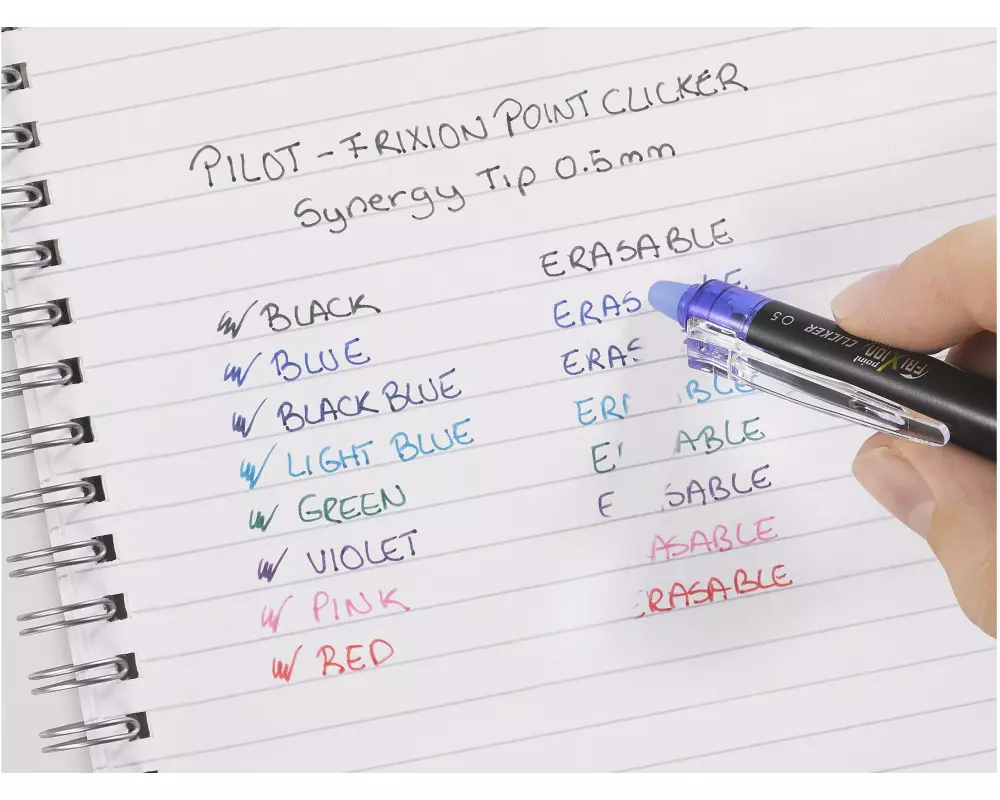 PILOT - FRIXION POINT CLICKER
Synergy Tip 0.5mm
ERASABLE
BLACK
ERAS LE
BLUE
ERAS
BLACK BLUE
ER BLE
LIGHT BLUE
E ABLE
GREEN
E SABLE
VIOLET
ASABLE
PINK
RASABLE
RED
FRIXION point CLICKER 0.5